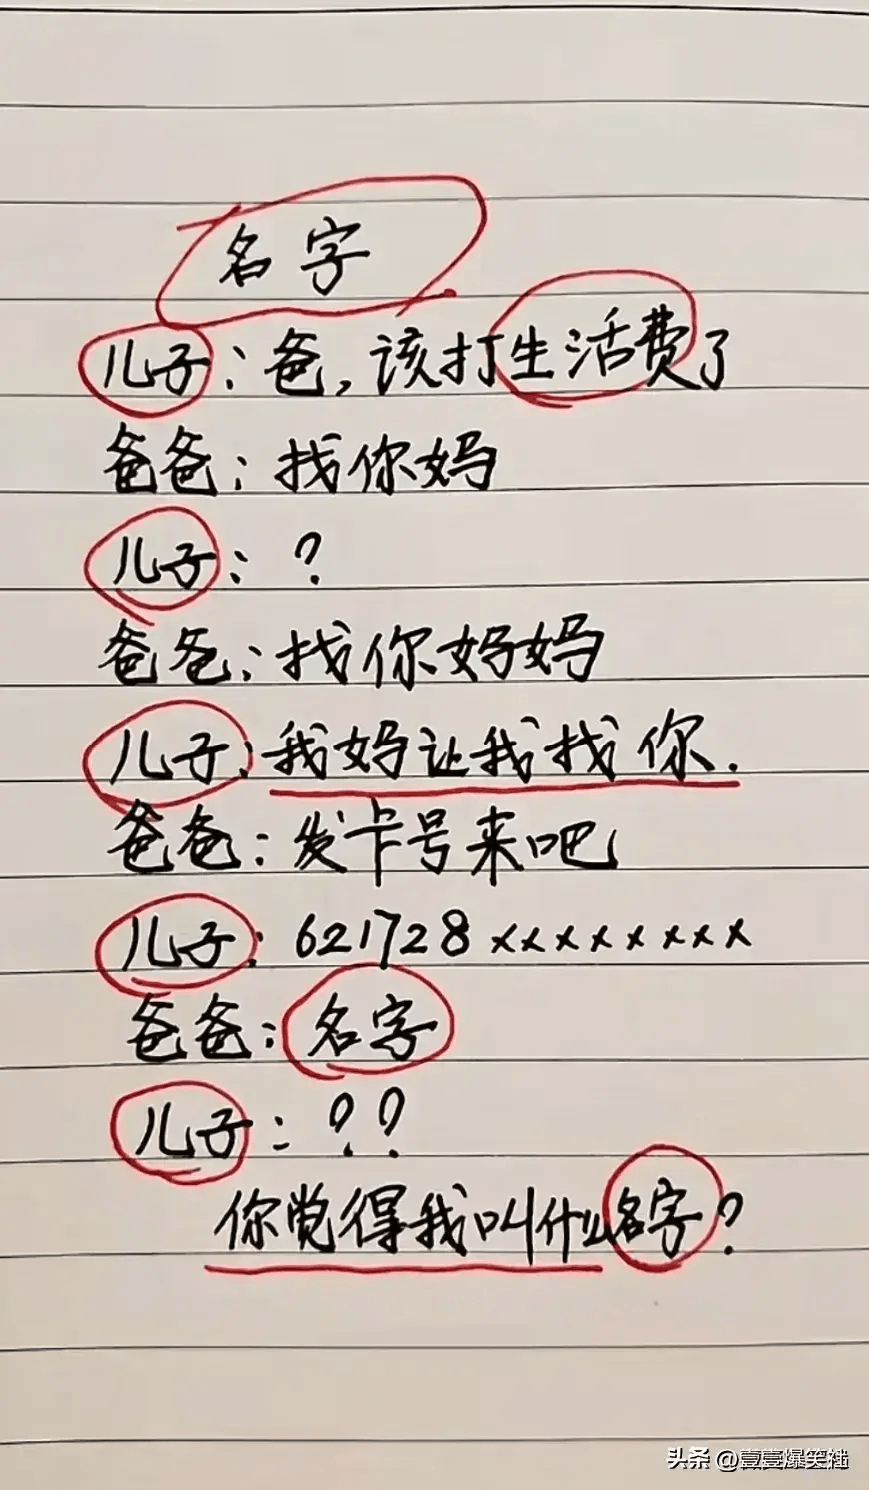 名字
儿子：爸，该打生活费了
爸爸：找你妈
儿子：？
爸爸：找你妈妈
儿子：我妈让我找你.
爸爸：发卡号来吧
儿子：621728××××××××
爸爸：名字
儿子：？？
你觉得我叫什么名字？
头条 @壹壹爆笑社